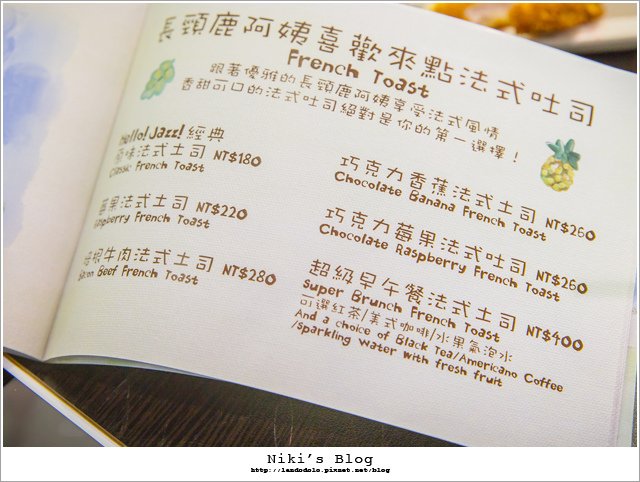 長頸鹿阿姨喜歡來點法式吐司
French Toast
跟著優雅的長頸鹿阿姨享受法式風情
香甜可口的法式吐司絕對是你的第一選擇！
Hello! Jazz! 經典
原味法式土司 NT$180
Classic French Toast
莓果法式土司 NT$220
Raspberry French Toast
培根牛肉法式土司 NT$280
Bacon Beef French Toast
巧克力香蕉法式土司 NT$260
Chocolate Banana French Toast
巧克力莓果法式吐司 NT$260
Chocolate Raspberry French Toast
超級早午餐法式土司 NT$400
Super Brunch French Toast
可選紅茶/美式咖啡/水果氣泡水
And a choice of Black Tea/Americano Coffee
/Sparkling Water with fresh fruit
Niki's Blog
http://landodolo.pixnet.net/blog